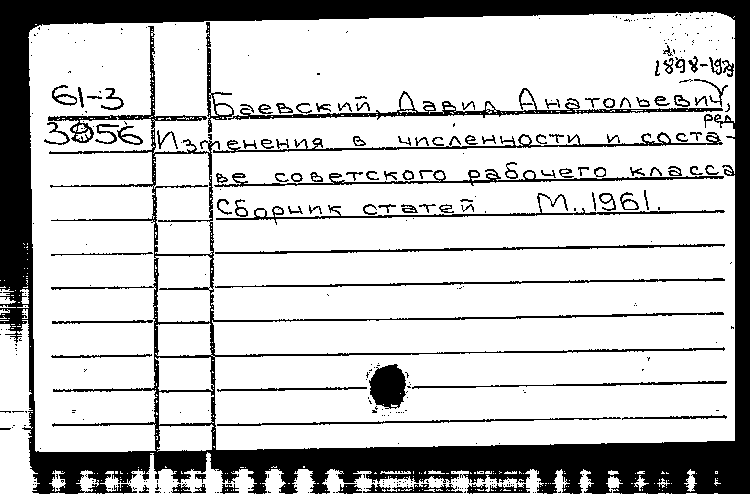 1898-19
61-3 Баевский, Давид Анатольевич,
ред.
3956 Изменения в численности и соста-
ве советского рабочего класса
Сборник статей. М., 1961.